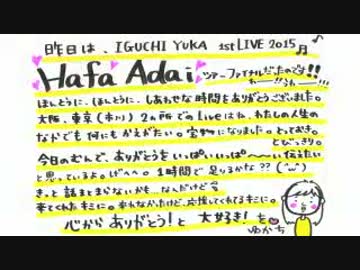 昨日は、IGUCHI YUKA 1st LIVE 2015♬
Hafa Adai ツアーファイナルだったのです!!
わーい!!うれー!!!
ほんとうに、ほんとうに、しあわせな時間をありがとうございました。
大阪、東京(市川) 2ヵ所でのLiveはね、わたしの人生の
なかでも何にもかえがたい。宝物になりました。とっておき。
とびっきり。
今日のむんで、ありがとうをいっぱいいっぱい〜〜い伝えたい
と思っているよ。げへへ。1時間で足りるかな??(´ω`)
きっと話まとまらないかも、なんだけど
来てくれたキミに。来れなかったけど、応援してくれてるキミに。
心から ありがとう!と 大好き!を
ゆかち